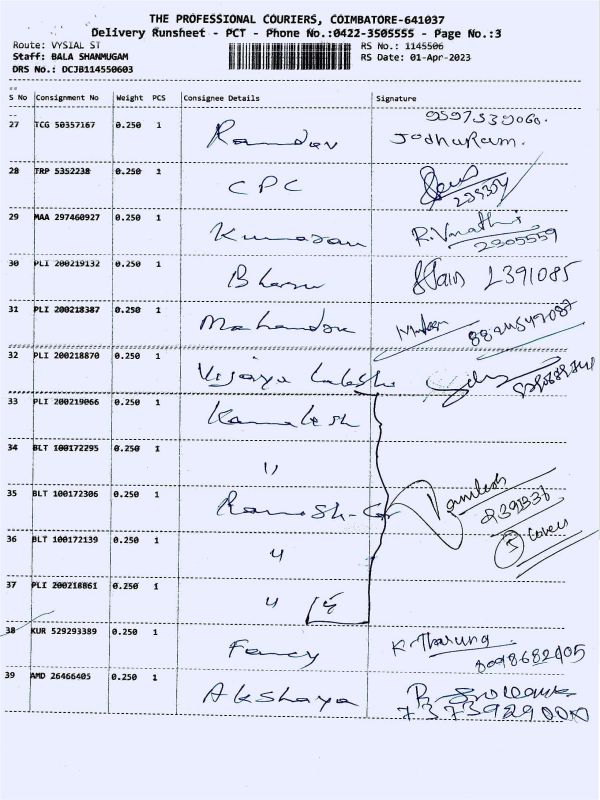 THE PROFESSIONAL COURIERS, COIMBATORE-641037
Delivery Runsheet - PCT - Phone No.:0422-3505555 - Page No.:3
Route: VYSIAL ST RS No.: 1145506
Staff: BALA SHANMUGAM RS Date: 01-Apr-2023
DRS No.: DCJB114550603
S No Consignment No Weight PCS Consignee Details Signature
27 TCG 50357167 0.250 1 Ramdev
JodhaRam.
28 TRP 5352238 0.250 1 CPC
29 MAA 297460927 0.250 1 Kumaran R.Vmathi
2305559
30 PLI 200219132 0.250 1 Jain 2391085
31 PLI 200218387 0.250 1 Mahendra
32 PLI 200218870 0.250 1 Vijaya
33 PLI 200219066 0.250 1 Kamalesh
34 BLT 100172295 0.250 1 "
35 BLT 100172306 0.250 1 Ramesh Kamlesh
2391336
36 BLT 100172139 0.250 1 " 5 Covers
37 PLI 200218861 0.250 1 " 5
38 KUR 529293389 0.250 1 Fancy K. Tharung
8098682405
39 AMD 26466405 0.250 1 Akshaya